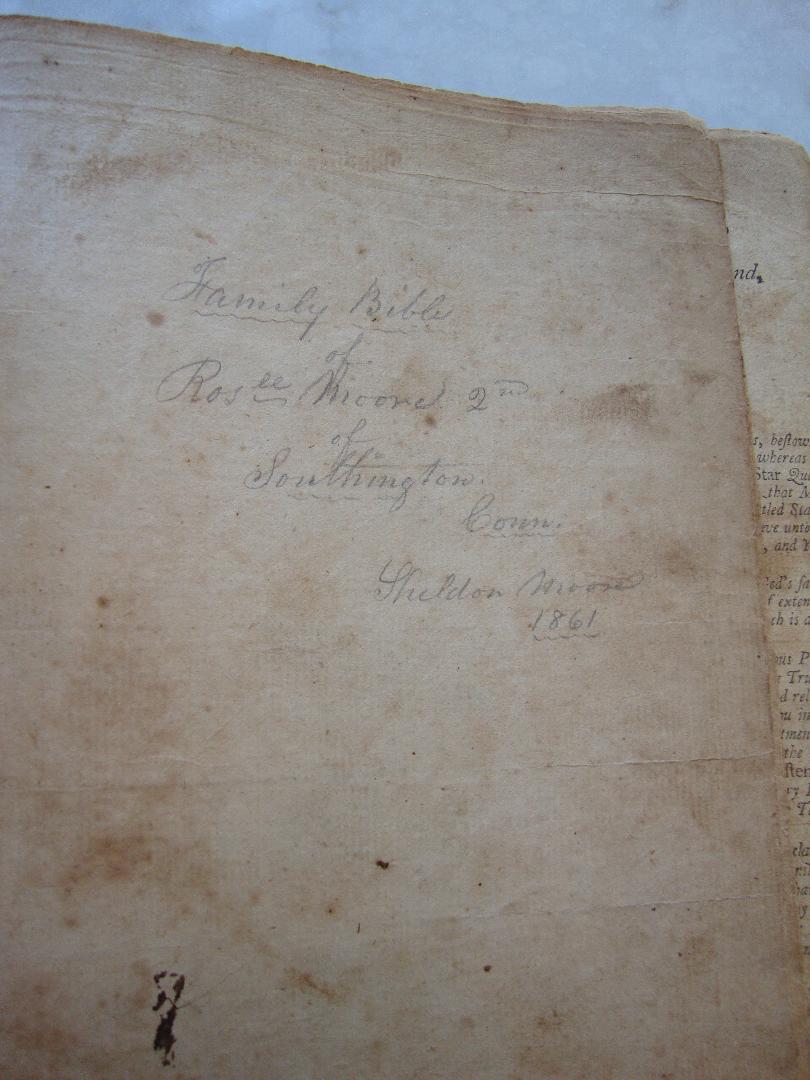 Family Bible
of
Ros^ll Moore 2nd
of
Southington.
Conn.
Sheldon Moore
1861
nd,
s, beſtow
whereas
Star Qu
that M
tled Sta
eve unto
, and Y
od's fa
f exten
ch is a
ous P
Tru
d rel
ou in
tmen
the
ry